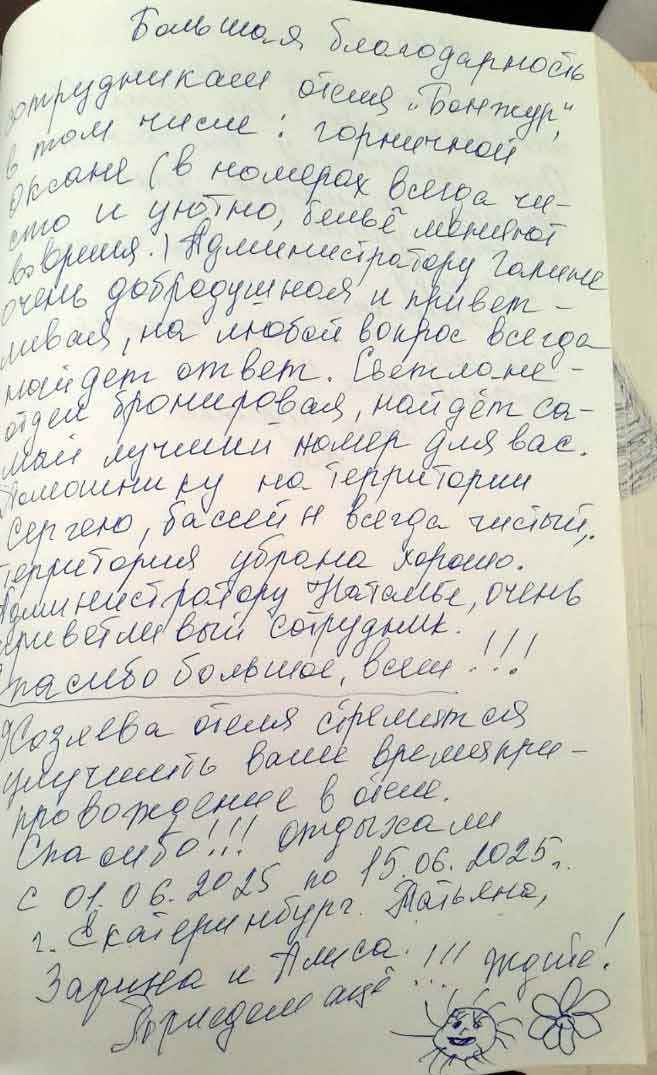 Большая благодарность
сотрудникам отеля „Бонжур",
в том числе: горничной
Оксане (в номерах всегда чи-
сто и уютно, бельё меняют
вовремя.) Администратору Галине
очень добродушная и привет-
ливая, на любой вопрос всегда
найдет ответ. Светлане -
отдел бронировая, найдёт са-
мый лучший номер для вас.
Помошнику на территории
Сергею, бассейн всегда чистый,
территория убрана хорошо.
Администратору Наталье, очень
приветливый сотрудник.
Спасибо большое, всем!!!
Хозяева отеля стремятся
улучшить ваше времяпри-
провождение в отеле.
Спасибо!!! отдыхали
с 01.06.2025 по 15.06.2025г.
г. Екатеринбург. Татьяна,
Зарина и Алиса.
Приедем ащё!!! ждите!